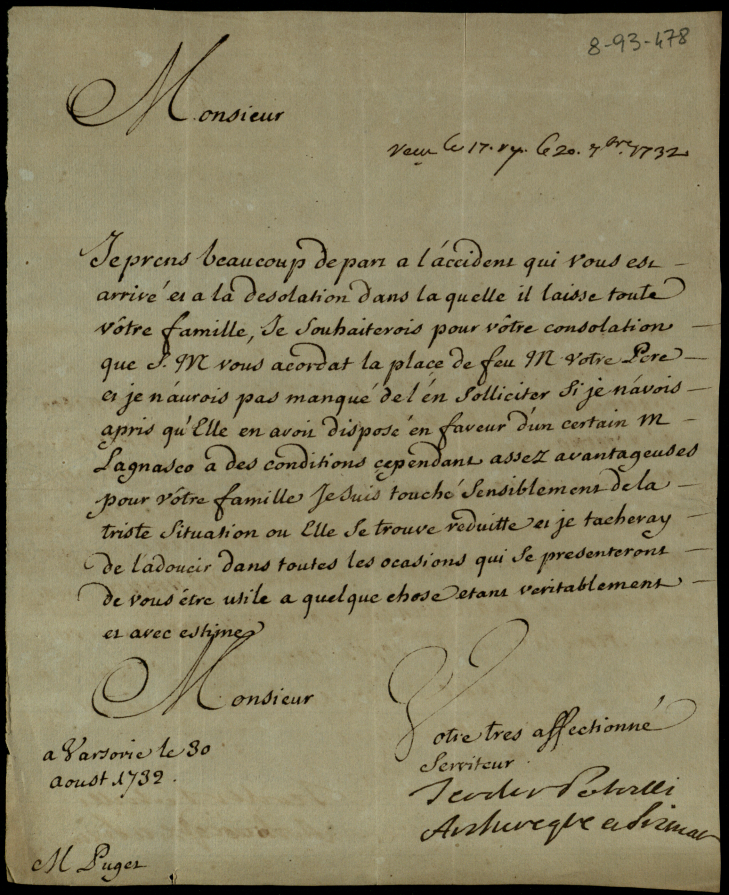 8-93-478
Monsieur
le 17. le 20. 7bre. 1732
Je prens beaucoup de part a l'áccident qui vous est
arrivé et a la desolation dans la quelle il laisse toute
vôtre famille, Je souhaiterois pour vôtre consolation
que S. M vous acordat la place de feu M votre Pere
et je n'áurois pas manqué de l'én solliciter si je n'ávois
apris qu'Elle en avoit disposé en faveur d'un certain M
Lagnasco a des conditions cependant assez avantageuses
pour vôtre famille Je suis touché sensiblement de la
triste situation ou Elle se trouve reduitte et je tacheray
de l'ádoucir dans toutes les ocasions qui se presenteront
de vous étre utile a quelque chose etant veritablement
et avec estime
Monsieur
Votre tres affectionné
Serviteur
a Varsovie le 30
aoust 1732.
M Puget